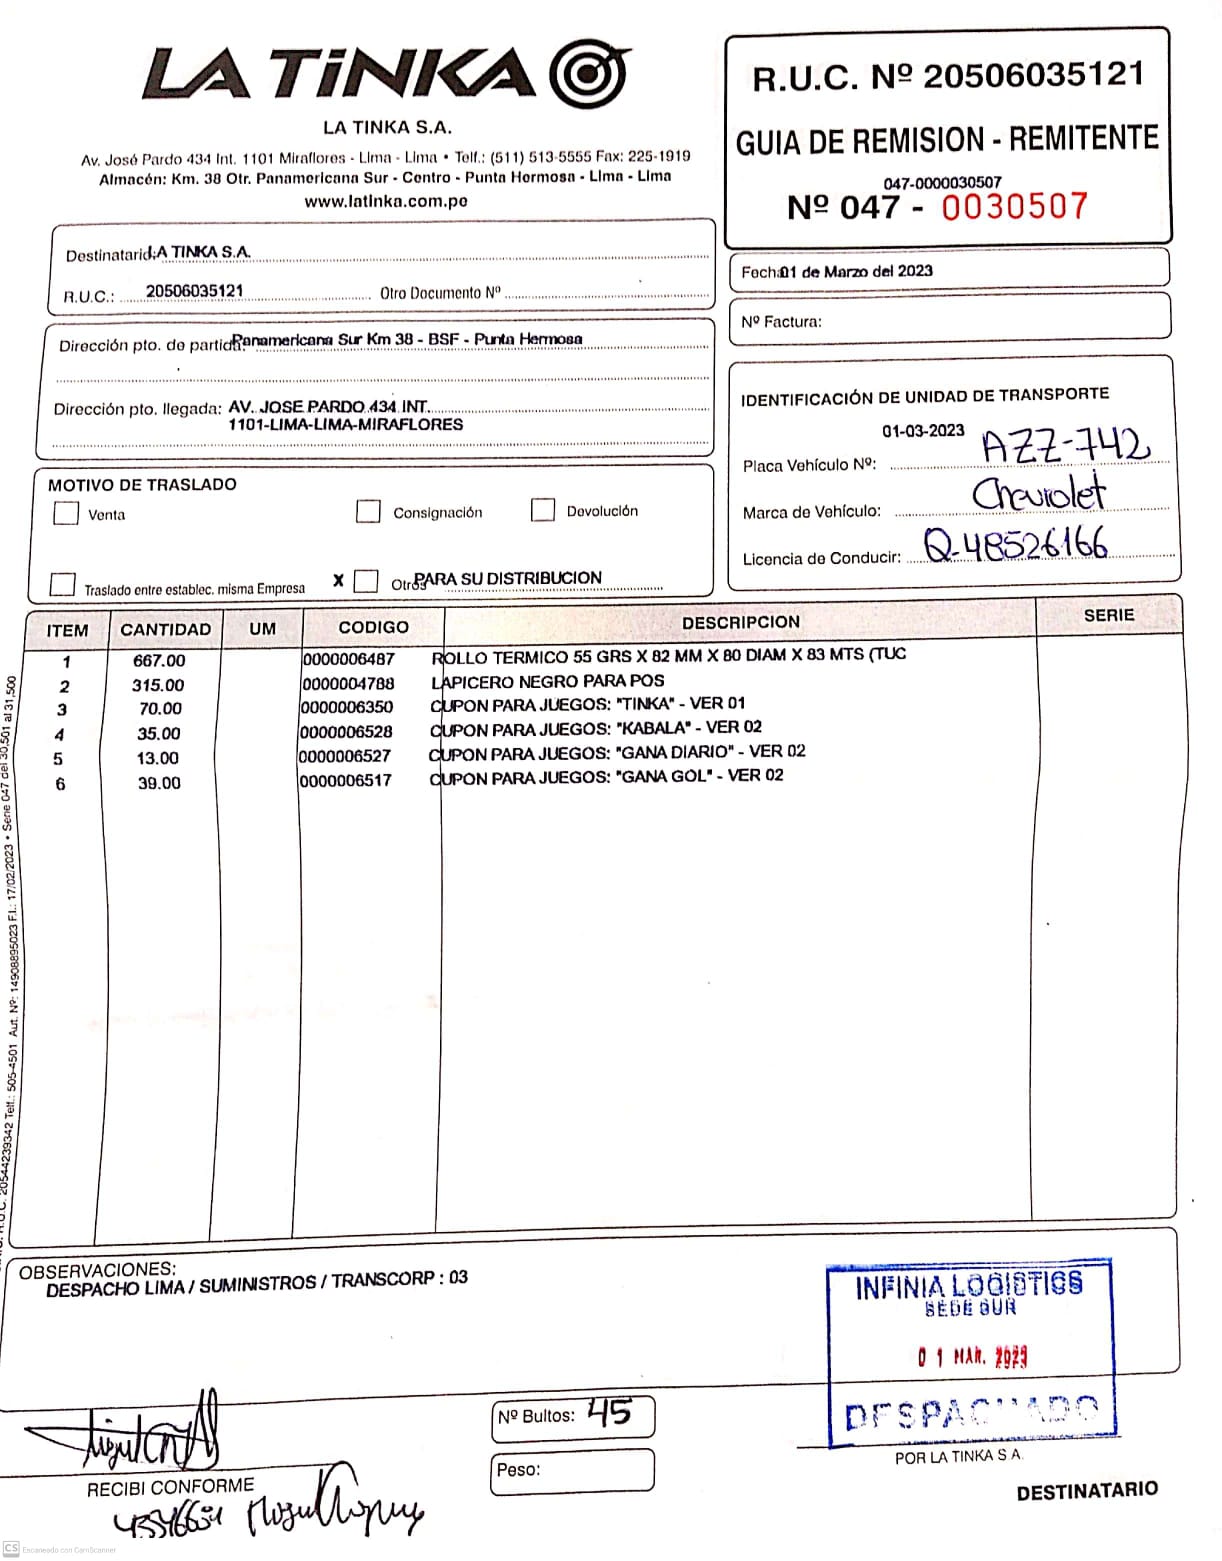 LA TiNKA
LA TINKA S.A.
Av. José Pardo 434 Int. 1101 Miraflores - Lima - Lima • Telf.: (511) 513-5555 Fax: 225-1919
Almacén: Km. 38 Otr. Panamericana Sur - Centro - Punta Hermosa - Lima - Lima
www.latinka.com.pe
R.U.C. Nº 20506035121
GUIA DE REMISION - REMITENTE
047-0000030507
Nº 047 - 0030507
Destinatario: LA TINKA S.A.
R.U.C.: 20506035121 Otro Documento Nº
Fecha: 01 de Marzo del 2023
Nº Factura:
Dirección pto. de partida: Panamericana Sur Km 38 - BSF - Punta Hermosa
Dirección pto. llegada: AV. JOSE PARDO 434 INT.
1101-LIMA-LIMA-MIRAFLORES
IDENTIFICACIÓN DE UNIDAD DE TRANSPORTE
01-03-2023
Placa Vehículo Nº: AZZ-742
Marca de Vehículo: Chevrolet
Licencia de Conducir: Q-48526166
MOTIVO DE TRASLADO
Venta Consignación Devolución
Traslado entre establec. misma Empresa X Otros PARA SU DISTRIBUCION
ITEM CANTIDAD UM CODIGO DESCRIPCION SERIE
1 667.00 0000006487 ROLLO TERMICO 55 GRS X 82 MM X 80 DIAM X 83 MTS (TUC
2 315.00 0000004788 LAPICERO NEGRO PARA POS
3 70.00 0000006350 CUPON PARA JUEGOS: "TINKA" - VER 01
4 35.00 0000006528 CUPON PARA JUEGOS: "KABALA" - VER 02
5 13.00 0000006527 CUPON PARA JUEGOS: "GANA DIARIO" - VER 02
6 39.00 0000006517 CUPON PARA JUEGOS: "GANA GOL" - VER 02
R.U.C. 20544239342 Telf.: 505-4501 Aut. Nº: 14908895023 F.I.: 17/02/2023 • Serie 047 del 30,501 al 31,500
OBSERVACIONES:
DESPACHO LIMA / SUMINISTROS / TRANSCORP : 03
INFINIA LOGISTICS
SEDE SUR
01 MAR. 2023
DESPACHADO
Nº Bultos: 45
Peso:
POR LA TINKA S A.
RECIBI CONFORME
DESTINATARIO
CS Escaneado con CamScanner